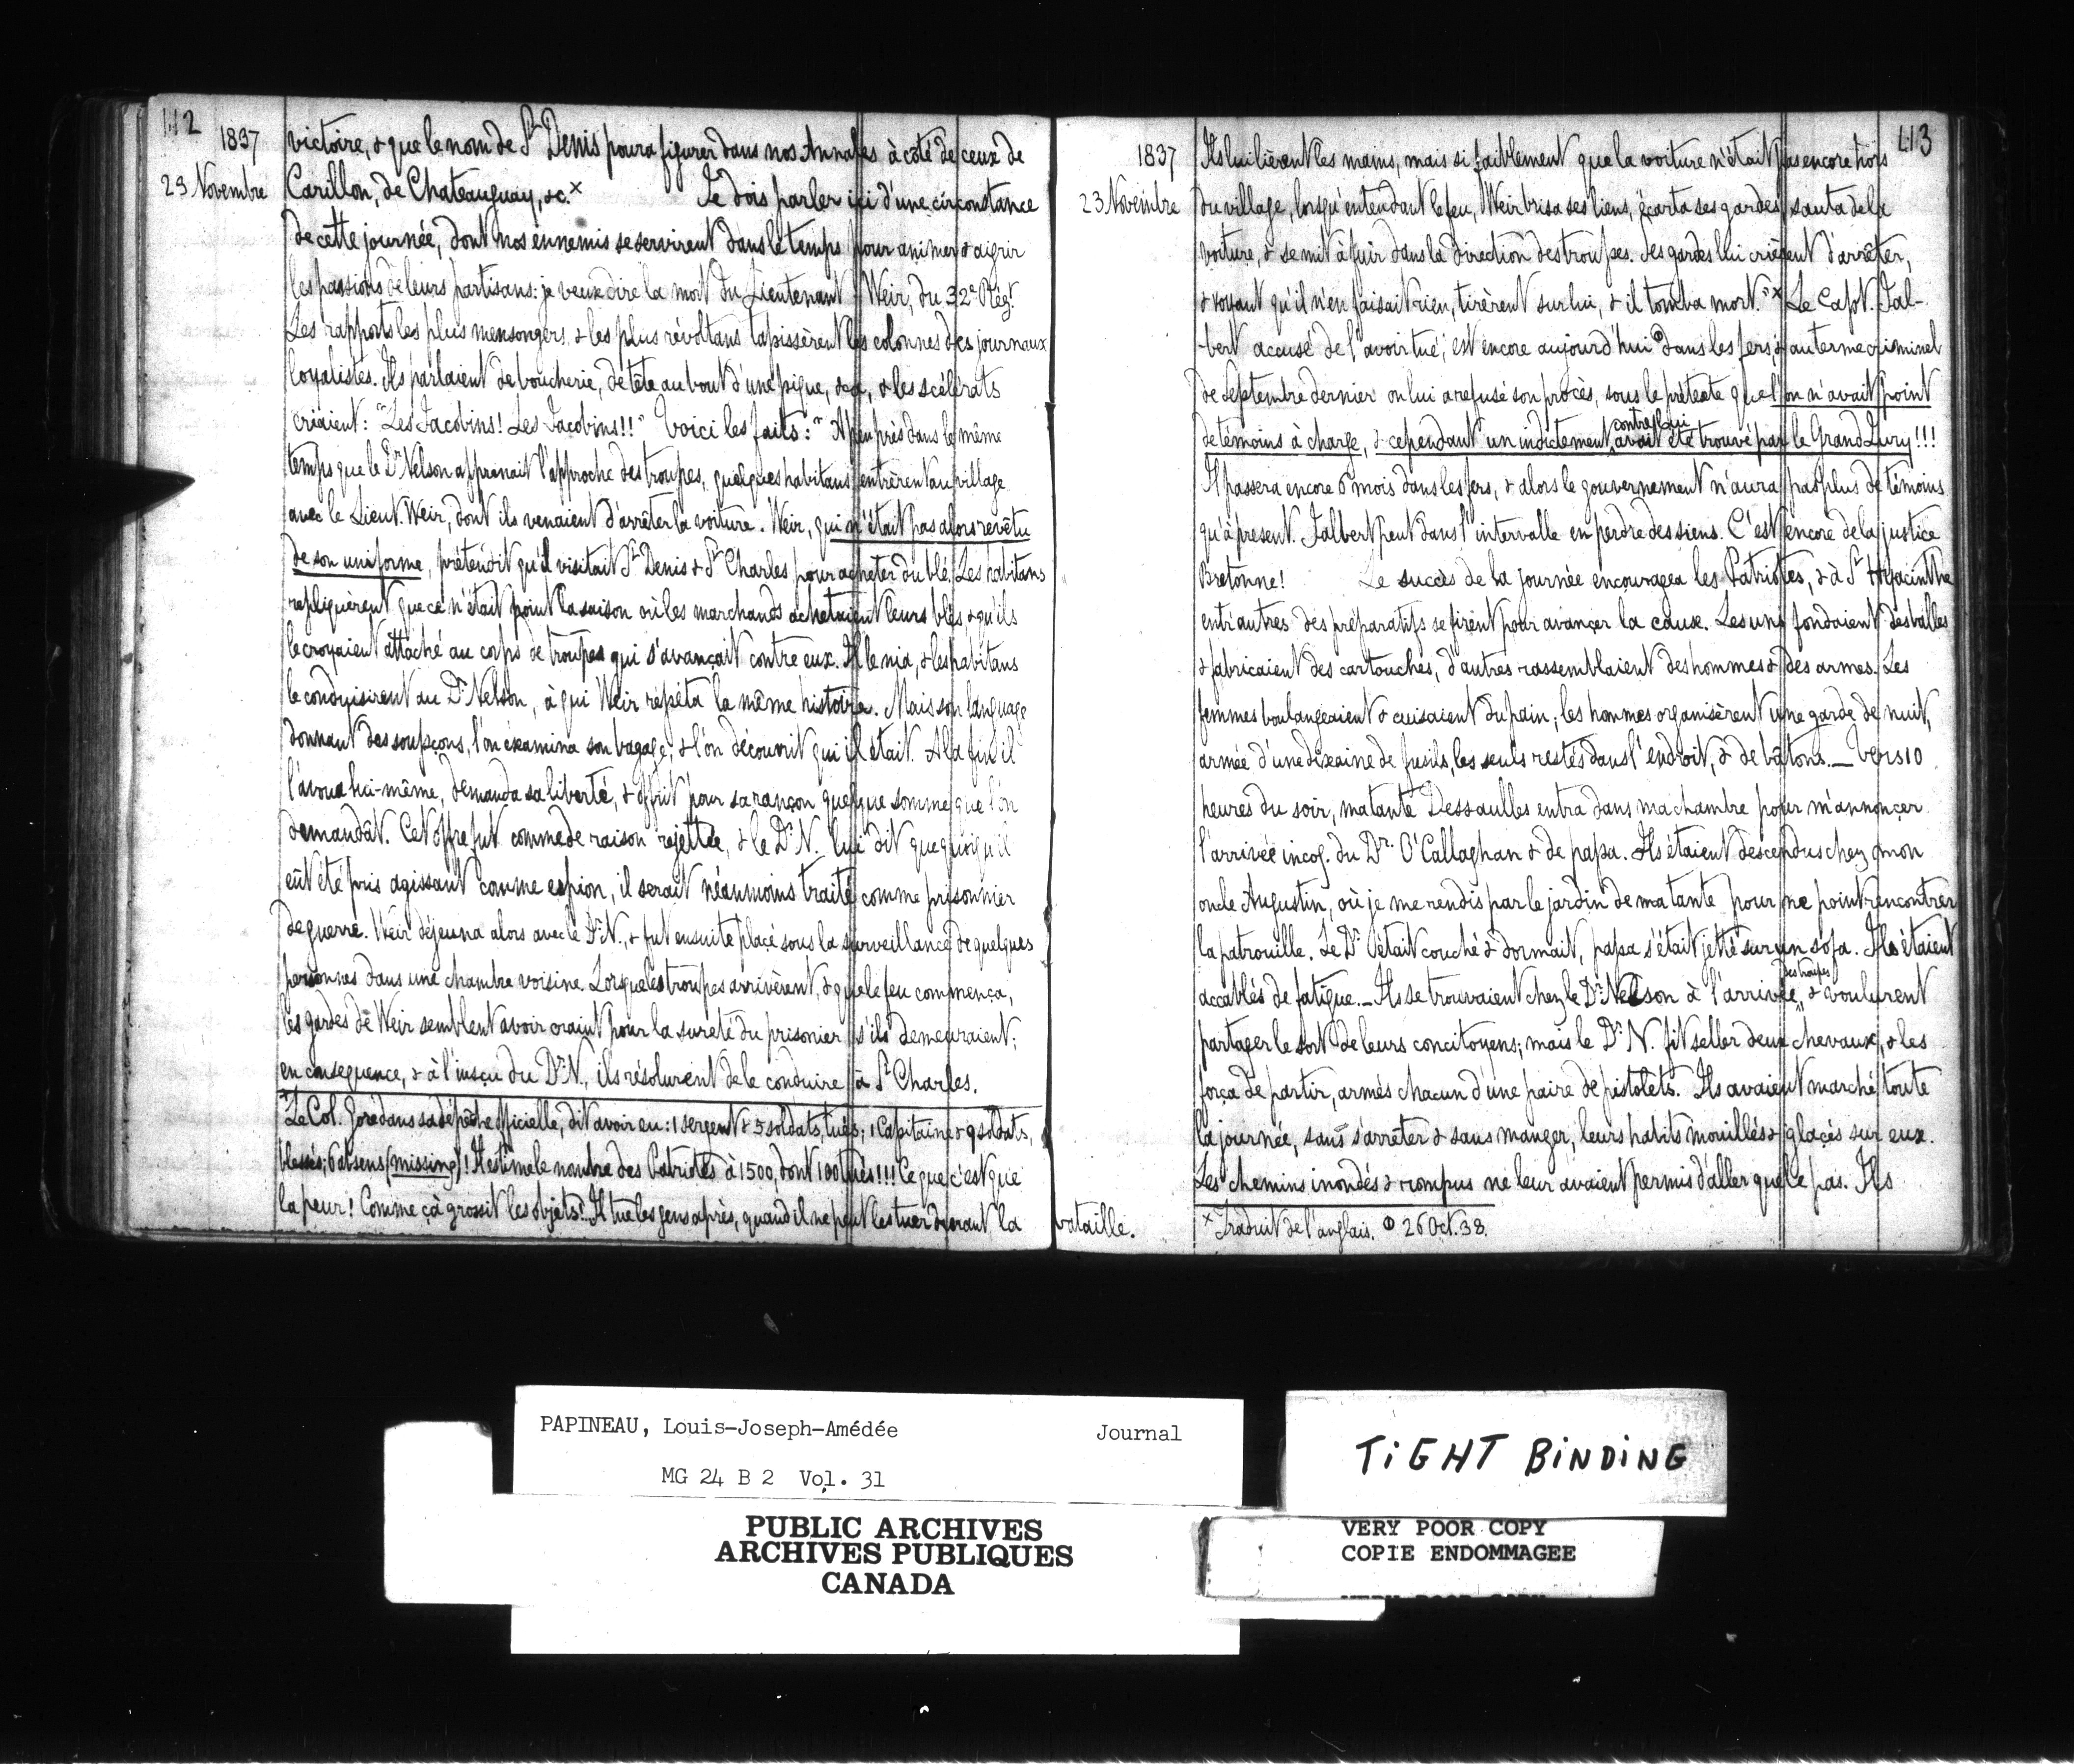 112
1837
23 Novembre
victoire, & que le nom de St Denis poura figurer dans nos Annales à côté de ceux de
Carillon, de Chateauguay, &c.x Je dois parler ici d'une circonstance
de cette journée, dont nos ennemis se servirent dans le temps pour animer & aigrir
les passions de leurs partisans: je veux dire la mort du Lieutenant Weir, du 32e Régt.
Les rapports les plus mensongers & les plus révoltans tapissèrent les colonnes des journaux
loyalistes. Ils parlaient de boucherie, de tête au bout d'une pique, &ca, & les scélérats
criaient: "Les Jacobins! Les Jacobins!!" Voici les faits: "A peu près dans le même
temps que le Dr Nelson apprenait l'approche des troupes, quelques habitans entrèrent au village
avec le Lieut. Weir, dont ils venaient d'arrêter la voiture. Weir, qui n'était pas alors revêtu
de son uniforme, prétendit qu'il visitait St Denis & St Charles pour acheter du blé. Les habitans
repliquèrent que ce n'était point la saison où les marchands achetaient leurs blés & qu'ils
le croyaient attaché au corps de troupes qui s'avançait contre eux. Il le nia, & les habitans
le conduisirent au Dr Nelson, à qui Weir répéta la même histoire. Mais son language
donnant des soupçons, l'on examina son bagage, & l'on découvrit qui il était. A la fin il
l'avoua lui-même, demanda sa liberté, & offrit pour sa rançon quelque somme que l'on
demandât. Cet offre fut comme de raison rejettée, & le Dr N. lui dit que quoiqu'il
eût été pris agissant comme espion, il serait néanmoins traité comme prisonnier
de guerre. Weir déjeuna alors avec le Dr N., & fut ensuite placé sous la surveillance de quelques
personnes dans une chambre voisine. Lorsque les troupes arrivèrent, & que le feu commença,
les gardes de Weir semblent avoir craint pour la sureté du prisonier s'ils demeuraient;
en conséquence, & à l'insçu du Dr N., ils résolurent de le conduire à St Charles.
x Le Col. Gore dans sa dépêche officielle, dit avoir eu: 1 sergent & 5 soldats, tués; 1 Capitaine & 9 soldats,
blessés; 6 absens (missing)! Il estime le nombre des Patriotes à 1500, dont 100 tués!!! Ce que c'est que
la peur! Comme çà grossit les objets! Il tue les gens après, quand il ne peut les tuer durant la
bataille.
113
1837
23 Novembre
Ils lui lièrent les mains, mais si faiblement que la voiture n'était pas encore hors
du village, lorsqu'entendant le feu, Weir brisa ses liens, écarta ses gardes, sauta de la
voiture, & se mit à fuir dans la direction des troupes. Ses gardes lui crièrent d'arrêter,
& voyant qu'il n'en faisait rien, tirèrent sur lui, & il tomba mort."x Le Capt. Jal-
-bert accusé de l'avoir tué, est encore aujourd'hui dans les fers; & au terme criminel
de Septembre dernier on lui a refusé son procès, sous le prétexte que l'on n'avait point
contre lui
de témoins à charge, & cependant un indictement avait été trouvé par le Grand Jury!!!
Il passera encore 6 mois dans les fers, & alors le gouvernement n'aura pas plus de témoins
qu'à présent. Jalbert peut dans l'intervalle en perdre des siens. C'est encore de la justice
Bretonne! Le succès de la journée encouragea les Patriotes, & à St Hyacinthe
entr'autres des préparatifs se firent pour avançer la cause. Les uns fondaient des balles
& fabricaient des cartouches, d'autres rassemblaient des hommes & des armes. Les
femmes boulangeaient & cuisaient du pain; les hommes organisèrent une garde de nuit,
armée d'une dixaine de fusils, les seuls restés dans l'endroit, & de bâtons. — Vers 10
heures du soir, ma tante Dessaulles entra dans ma chambre pour m'annonçer
l'arrivée incog. du Dr. O'Callaghan & de papa. Ils étaient descendus chez mon
oncle Augustin, où je me rendis par le jardin de ma tante pour ne point rencontrer
la patrouille. Le Dr. était couché & dormait, papa s'était jetté sur un sofa. Ils étaient
des troupes
accablés de fatigue. — Ils se trouvaient chez le Dr. Nelson à l'arrivée, & voulurent
partager le sort de leurs concitoyens; mais le Dr. N. fit seller deux chevaux, & les
força de partir, armés chacun d'une paire de pistolets. Ils avaient marché toute
la journée, sans s'arrêter & sans manger, leurs habits mouillés & glaçés sur eux.
Les chemins inondés & rompus ne leur avaient permis d'aller que le pas. Ils
x Traduit de l'anglais. 26 Oct. 38.
PAPINEAU, Louis-Joseph-Amédée Journal
MG 24 B 2 Vol. 31
PUBLIC ARCHIVES
ARCHIVES PUBLIQUES
CANADA
TIGHT BINDING
VERY POOR COPY
COPIE ENDOMMAGEE
VERY POOR COPY